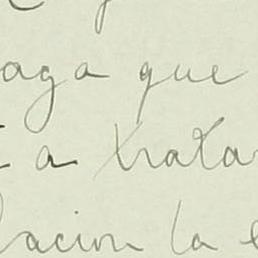 aga que
a tratar
lación la e